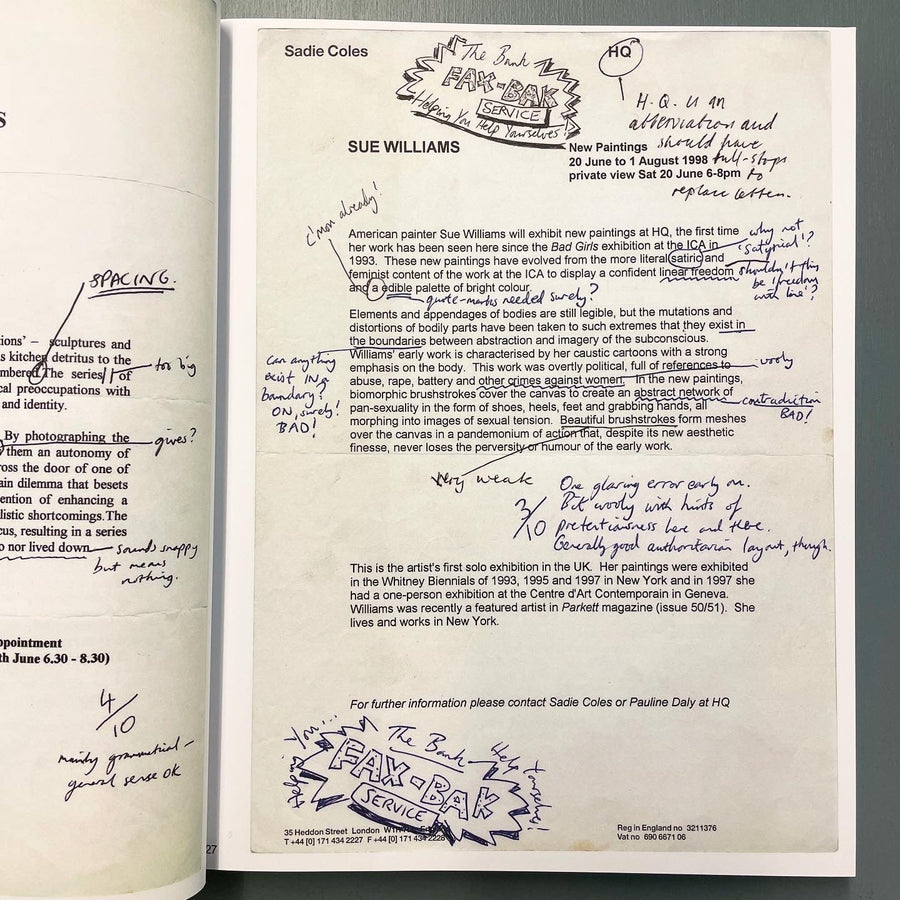 s
SPACING.
tions' – sculptures and
s kitchen detritus to the
mbered The series, of
too big
cal preoccupations with
and identity.
By photographing the
gives?
them an autonomy of
ross the door of one of
ain dilemma that besets
ention of enhancing a
listic shortcomings.The
cus, resulting in a series
o nor lived down
sounds snappy
but means
nothing.
ppointment
th June 6.30 - 8.30)
4/10
mainly grammatical –
general sense OK
27
Sadie Coles
The Bank
FAX-BAK
SERVICE
Helping You Help Yourselves!
HQ
H.Q. is an
abbreviation and
should have
full-stops
to
replace letters.
SUE WILLIAMS
New Paintings
20 June to 1 August 1998
private view Sat 20 June 6-8pm
c'mon already!
American painter Sue Williams will exhibit new paintings at HQ, the first time
her work has been seen here since the Bad Girls exhibition at the ICA in
1993. These new paintings have evolved from the more literal satiric and
feminist content of the work at the ICA to display a confident linear freedom
and a edible palette of bright colour.
why not
'satyrical'?
shouldn't this
be 'freedom
with line'?
quote-marks needed surely?
Elements and appendages of bodies are still legible, but the mutations and
distortions of bodily parts have been taken to such extremes that they exist in
the boundaries between abstraction and imagery of the subconscious.
Williams' early work is characterised by her caustic cartoons with a strong
emphasis on the body. This work was overtly political, full of references to
abuse, rape, battery and other crimes against women. In the new paintings,
biomorphic brushstrokes cover the canvas to create an abstract network of
pan-sexuality in the form of shoes, heels, feet and grabbing hands, all
morphing into images of sexual tension. Beautiful brushstrokes form meshes
over the canvas in a pandemonium of action that, despite its new aesthetic
finesse, never loses the perversity or humour of the early work.
can anything
exist IN a
boundary?
ON, surely!
BAD!
wooly
contradiction
BAD!
very weak
3/10
One glaring error early on.
But wooly with hints of
pretentiousness here and there.
Generally good authoritarian layout, though.
This is the artist's first solo exhibition in the UK. Her paintings were exhibited
in the Whitney Biennials of 1993, 1995 and 1997 in New York and in 1997 she
had a one-person exhibition at the Centre d'Art Contemporain in Geneva.
Williams was recently a featured artist in Parkett magazine (issue 50/51). She
lives and works in New York.
For further information please contact Sadie Coles or Pauline Daly at HQ
The Bank
FAX-BAK
SERVICE
Helping
You...
Help Yourselves!
35 Heddon Street London
T +44 [0] 171 434 2227 F +44 [0] 171 434 2228
Reg in England no 3211376
Vat no 690 6671 06